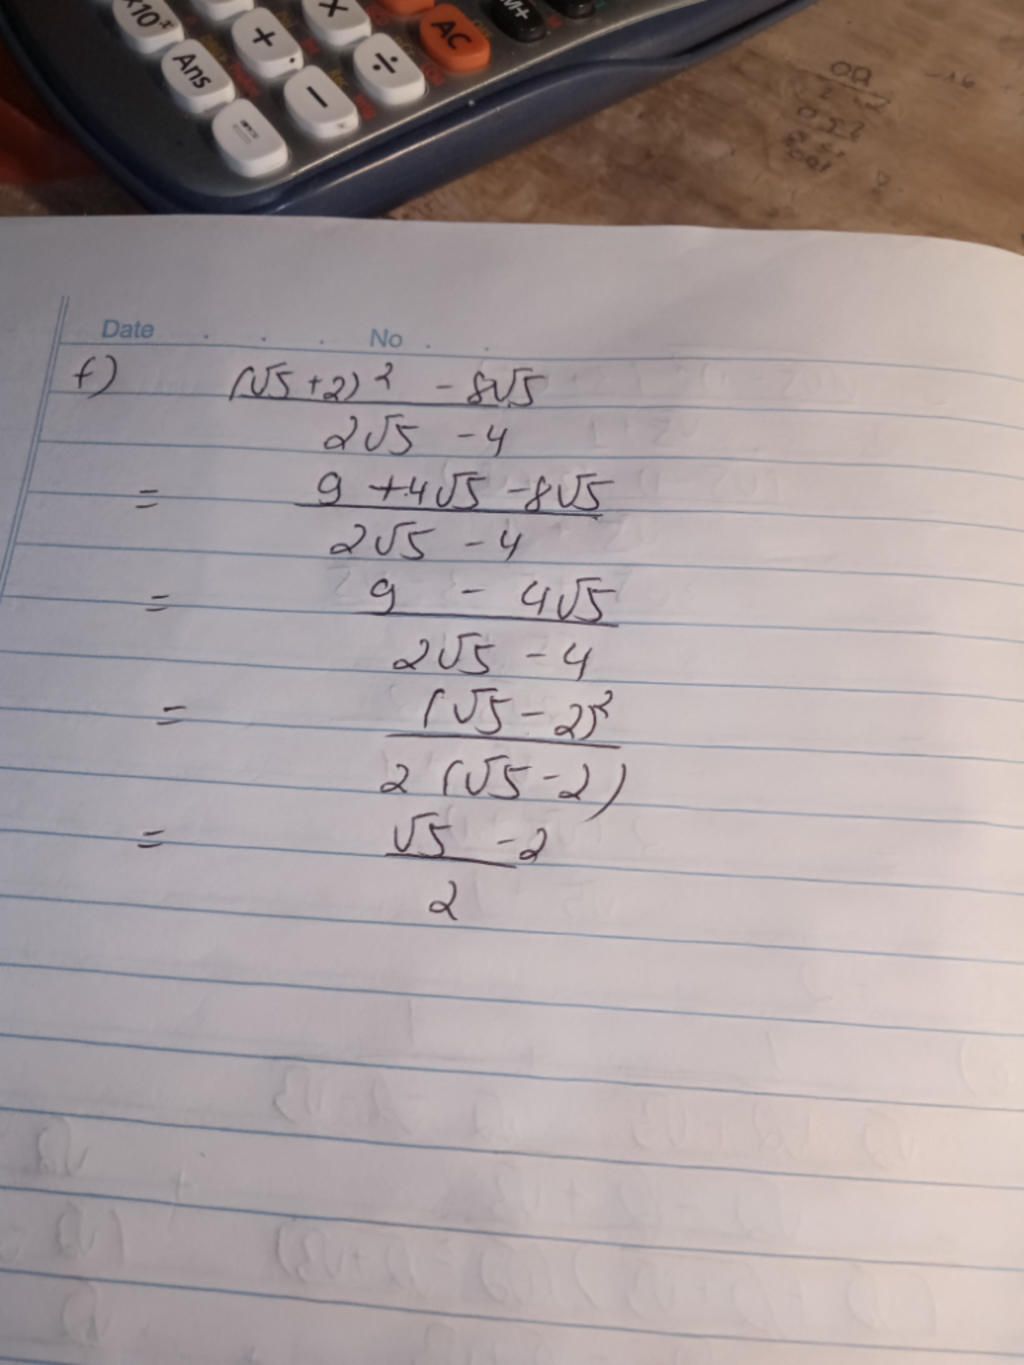 ×10ˣ + × ÷ AC M+
Ans −
=
Date No
f) (√5 + 2)² - 8√5
2√5 - 4
= 9 + 4√5 - 8√5
2√5 - 4
= 9 - 4√5
2√5 - 4
= (√5 - 2)²
2 (√5 - 2)
= √5 - 2
2